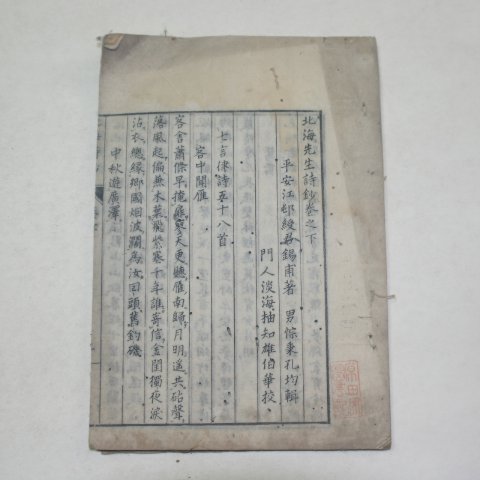 北海先生詩鈔卷之下
平安江邨綬君錫甫著 男悰秉孔均輯
門人淡海柚知雄伯華校
七言律詩五十八首
客中聞雁
客舍蕭條早掩扉寥天更聽雁南歸月明遥共砧聲
落風起偏無木葉飛紫塞十年誰寄信金閨獨夜淚
沾衣總緣鄉國烟波闊爲汝回頭舊釣磯
中秋遊廣澤